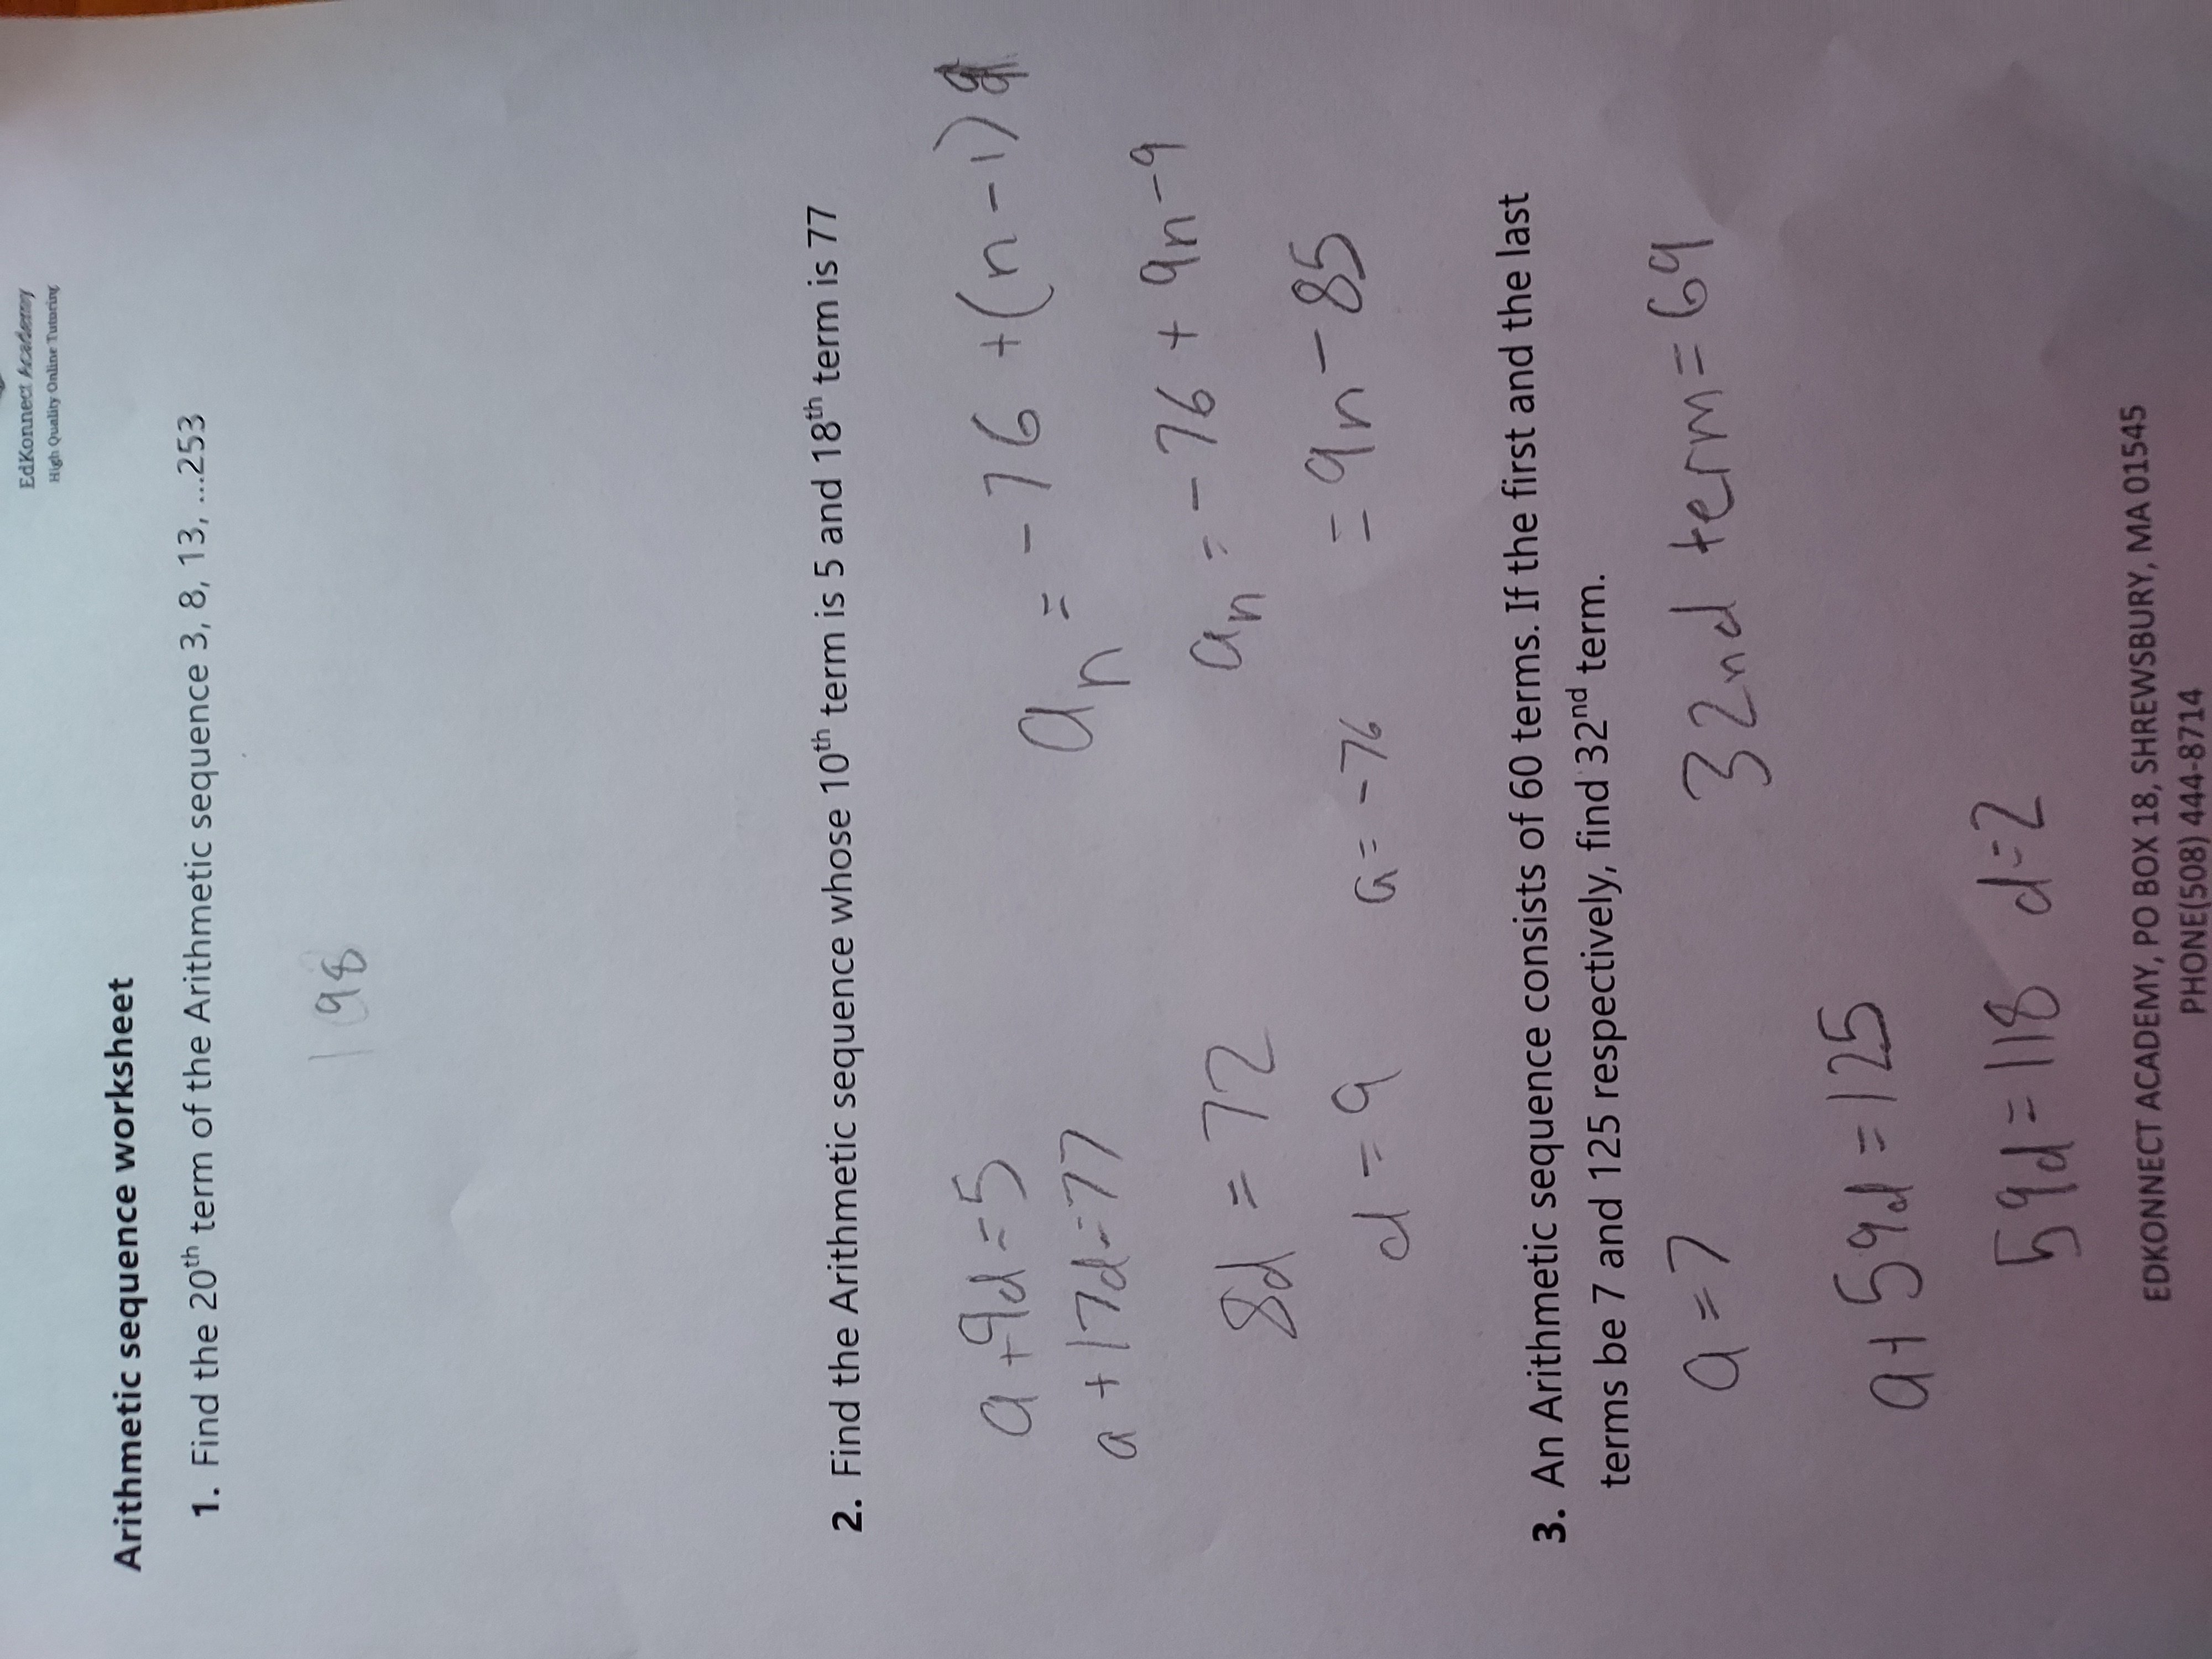 EdKonnect Academy
High Quality Online Tutoring
Arithmetic sequence worksheet
1. Find the 20th term of the Arithmetic sequence 3, 8, 13, ...253
98
2. Find the Arithmetic sequence whose 10th term is 5 and 18th term is 77
a + 9d = 5
a + 17d = 77
8d = 72
d = 9
a = -76
an = -76 + (n-1) 9
an = -76 + 9n - 9
= 9n - 85
3. An Arithmetic sequence consists of 60 terms. If the first and the last
terms be 7 and 125 respectively, find 32nd term.
a = 7
32nd term = 69
a + 59d = 125
59d = 118 d = 2
EDKONNECT ACADEMY, PO BOX 18, SHREWSBURY, MA 01545
PHONE(508) 444-8714